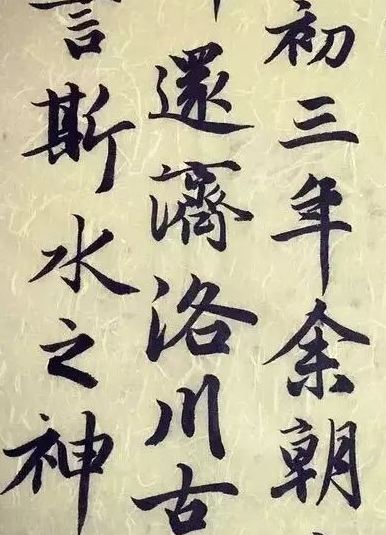 初三年余朝
還濟洛川古
言斯水之神